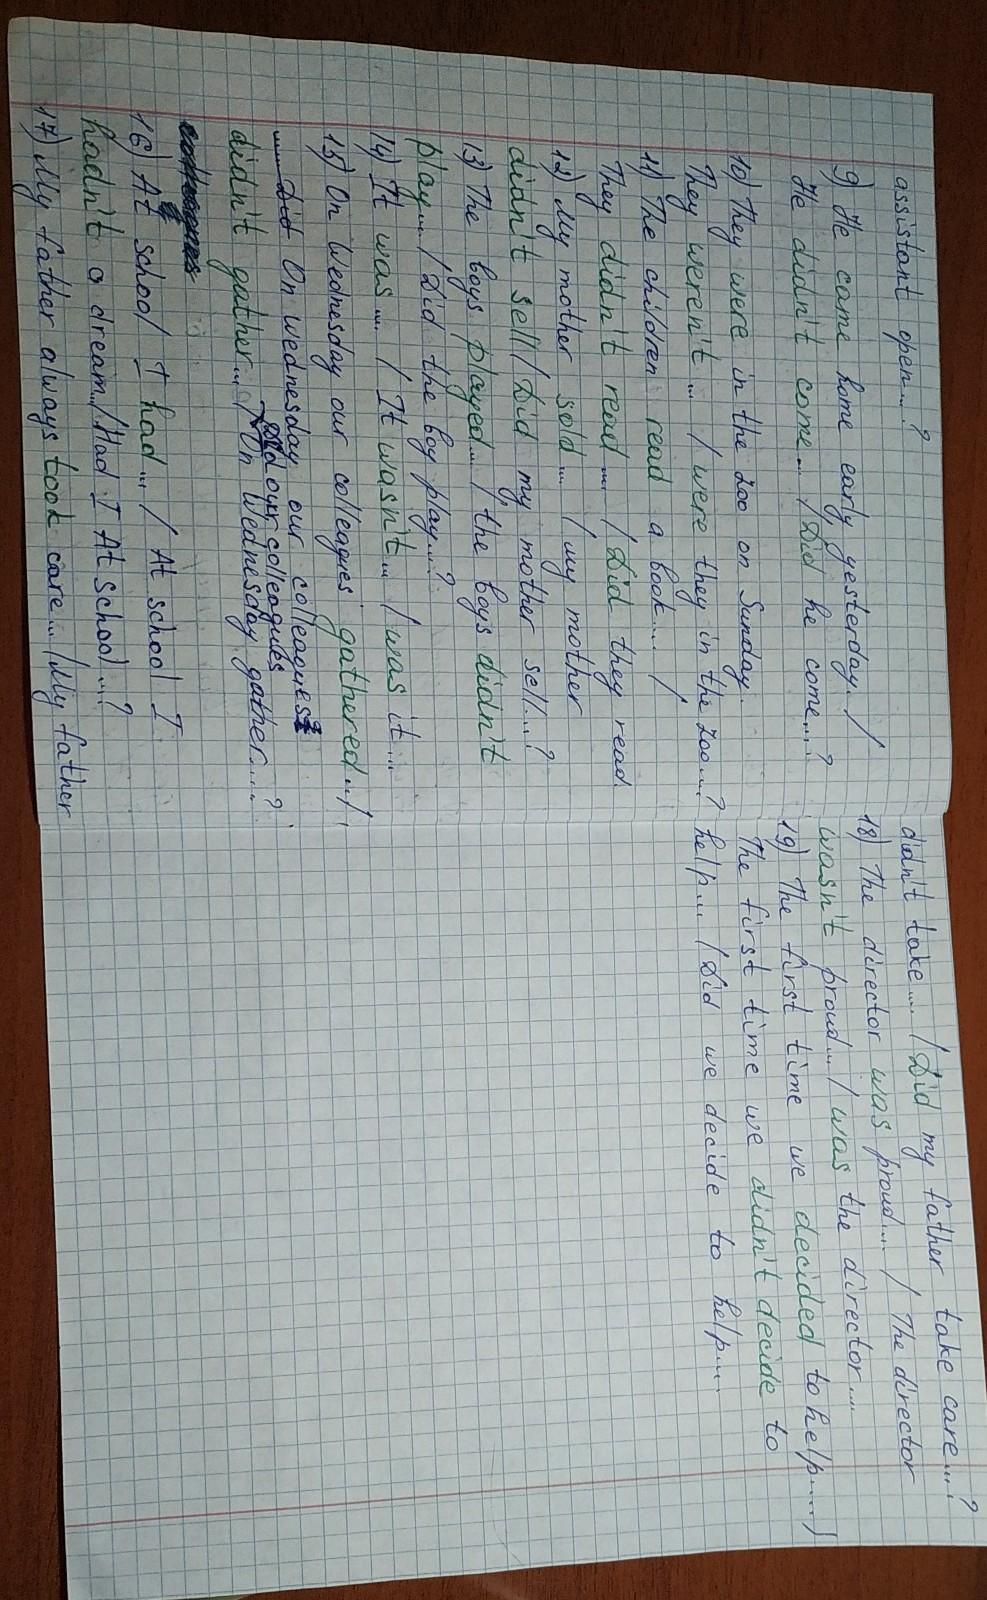 assistant open...?
9) He came home early yesterday. /
He didn't come... / Did he come...?
10) They were in the zoo on Sunday.
They weren't ... / were they in the zoo...?
11) The children read a book... /
They didn't read ... / Did they read
12) My mother sold... / my mother
didn't sell / Did my mother sell...?
13) The boys played... / the boys didn't
play... / Did the boy play...?
14) It was... / It wasn't... / was it...
15) On Wednesday our colleagues gathered... /
On Wednesday our colleagues
didn't gather... / On Wednesday gather...?
Did our colleagues
16) At school I had... / At school I
hadn't a dream... / Had I At school...?
17) My father always took care... / My father
didn't take... / Did my father take care...?
18) The director was proud... / The director
wasn't proud... / was the director...
19) The first time we decided to help... /
The first time we didn't decide to
help... / Did we decide to help...